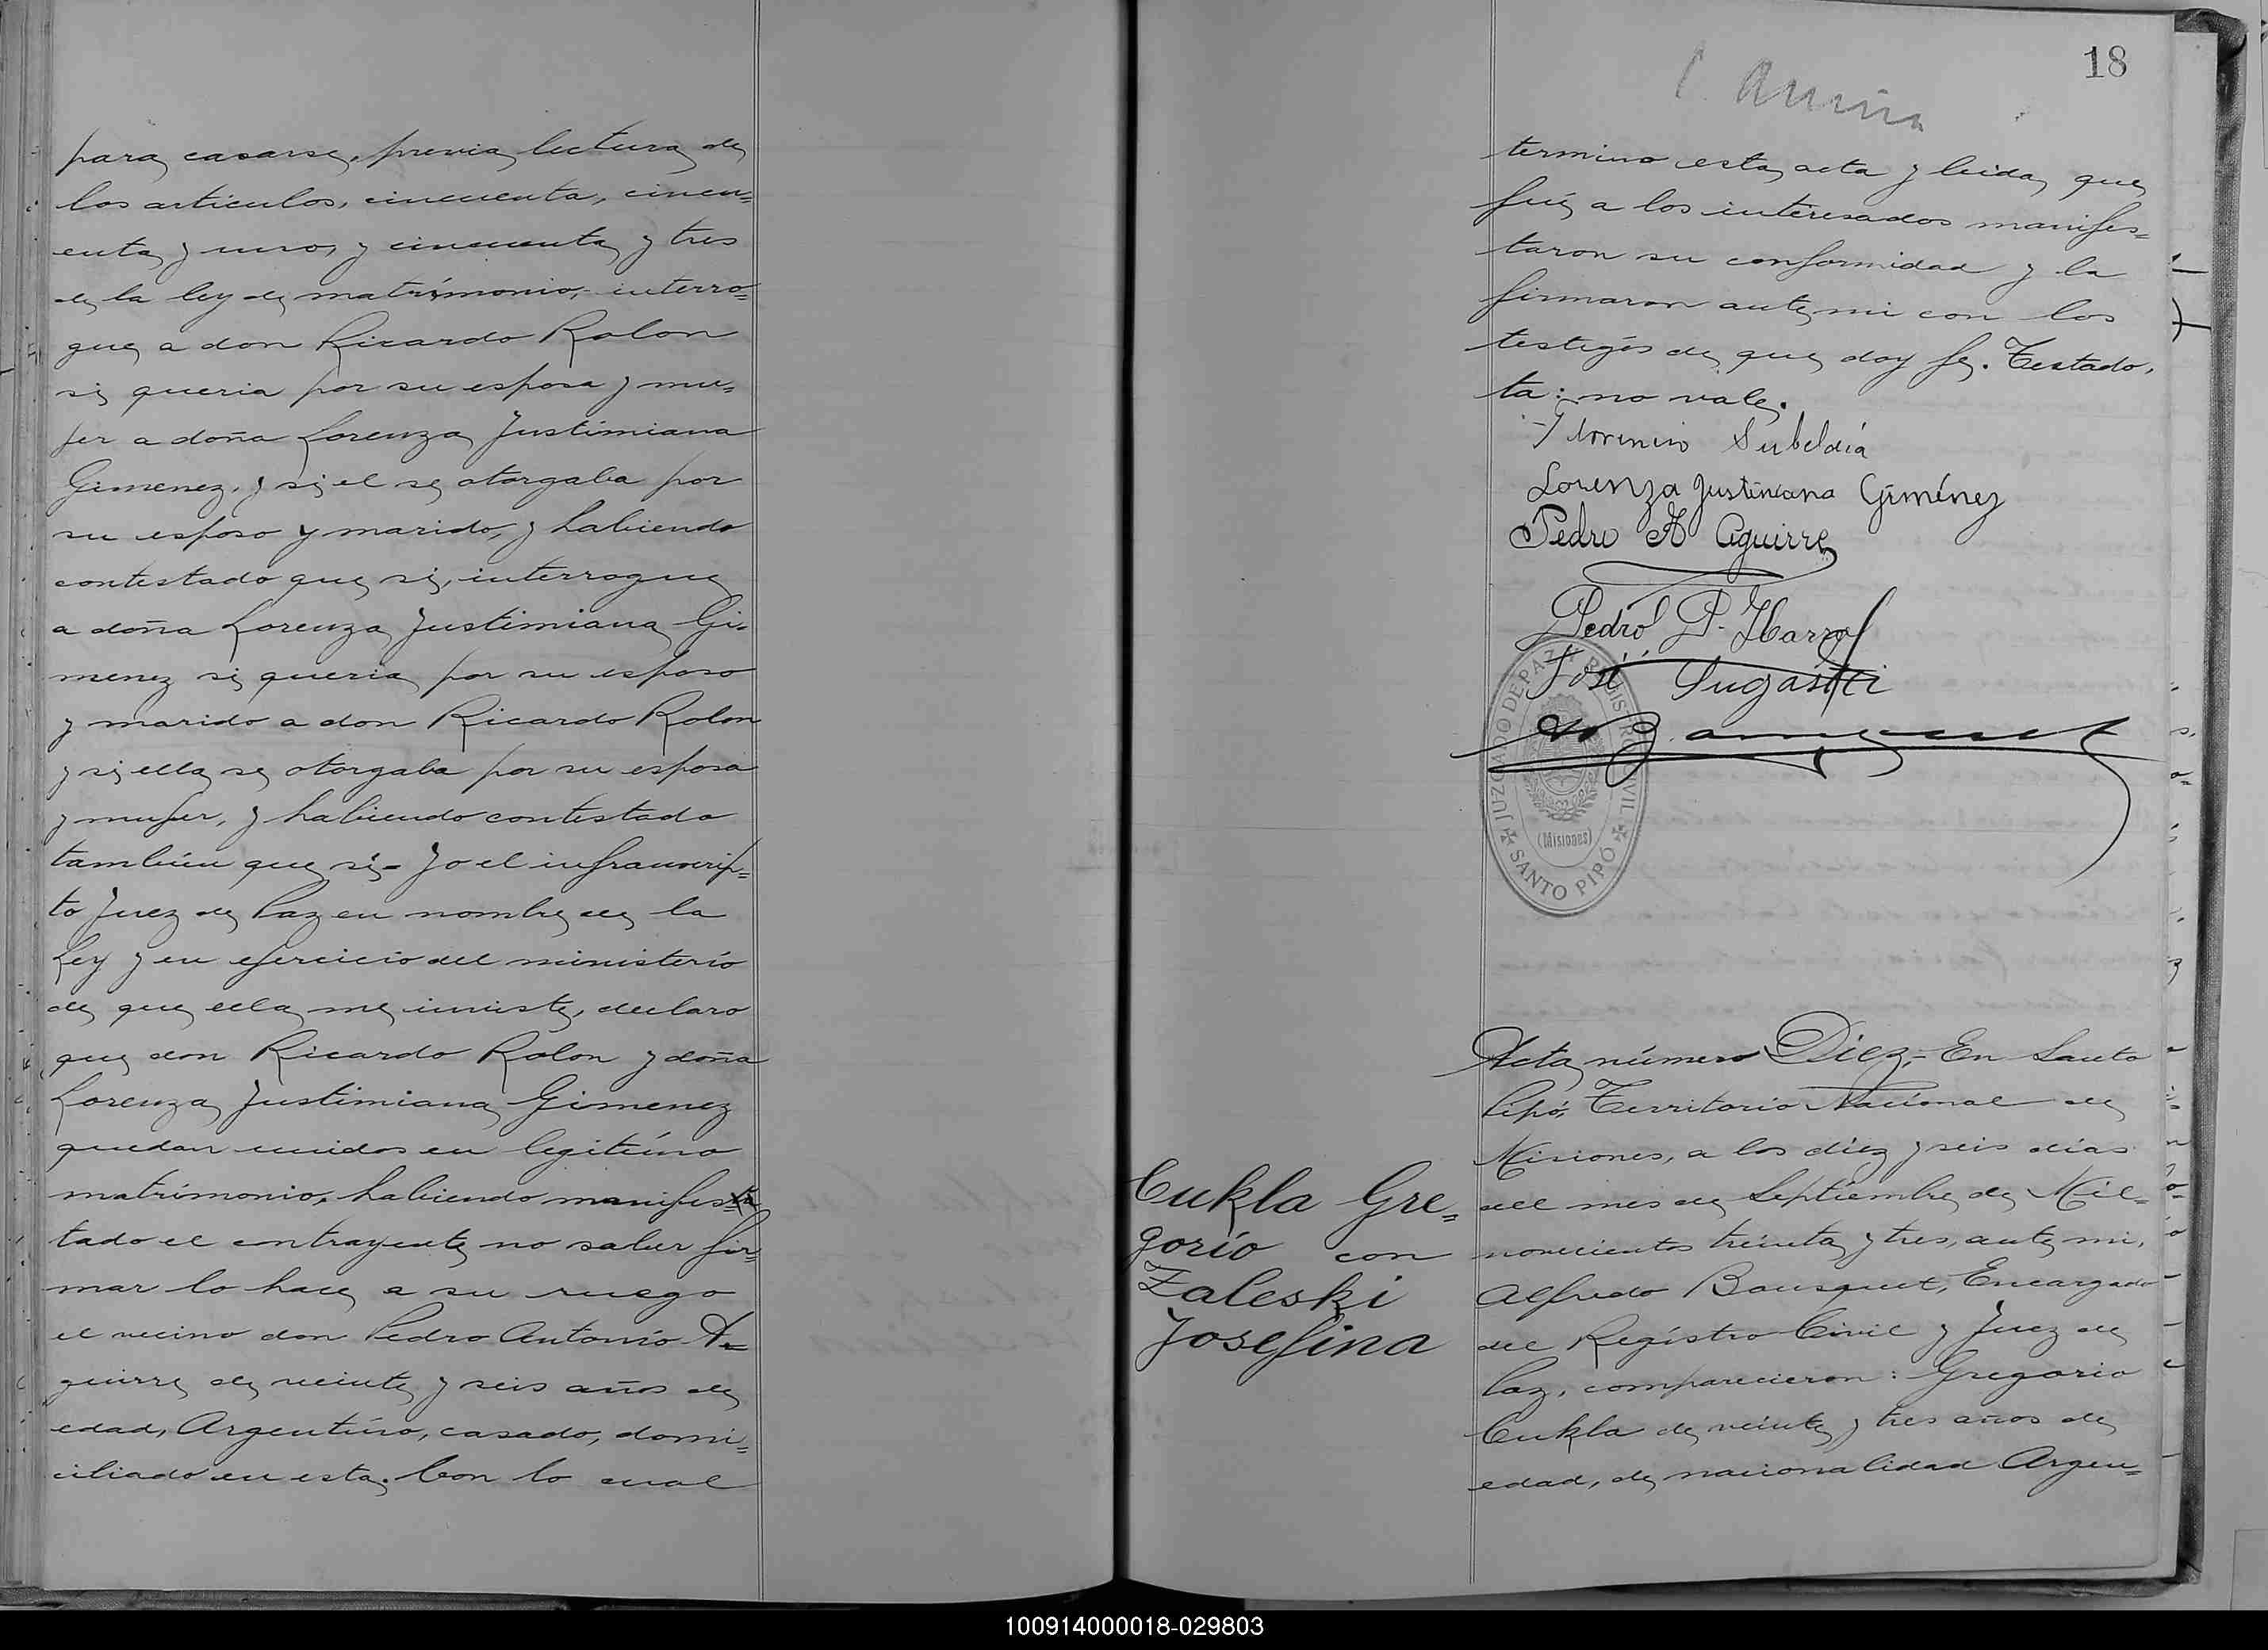 para casarse, previa lectura de
los articulos, cincuenta, cincu=
enta y uno, y cincuenta y tres
de la ley de matrimonio, interro=
gue a don Ricardo Rolon
si queria por su esposa y mu=
jer a doña Lorenza Justimiana
Gimenez, y si el se otorgaba por
su esposo y marido, y habiendo
contestado que si, interrogue
a doña Lorenza Justimiana Gi=
menez si queria por su esposo
y marido a don Ricardo Rolon
y si ella se otorgaba por su esposa
y mujer, y habiendo contestado
tambien que si - Yo el infrascrip=
to Juez de Paz en nombre de la
Ley y en ejercicio del ministerio
de que ella me inviste, declaro
que don Ricardo Rolon y doña
Lorenza Justimiana Gimenez
quedan unidos en legitimo
matrimonio, habiendo manifesta
tado el contrayente no saber fir=
mar lo hace a su ruego
el vecino don Pedro Antonio A=
guirre de veinte y seis años de
edad, Argentino, casado, domi=
ciliado en esta. Con lo cual
18
termino esta acta y leida que
fué a los interesados manifes=
taron su conformidad y la
firmaron ante mi con los
testigos de que doy fe. Testado,
ta: no vale.
Florencio Subeldia
Lorenza Justiniana Giménez
Pedro A Aguirre
Pedro P. Ybarra
José
JUZGADO DE PAZ Y REGISTRO CIVIL
(Misiones)
SANTO PIPÓ
Acta número Diez,- En Santo
Pipó, Territorio Nacional de
Misiones, a los diez y seis dias
del mes de Septiembre de Mil=
novecientos treinta y tres, ante mi,
Alfredo Bousquet, Encargado
del Registro Civil y Juez de
Paz, comparecieron: Gregorio
Cukla de veinte y tres años de
edad, de nacionalidad Argen=
Cukla Gre=
gorio con
Zaleski
Josefina
100914000018-029803